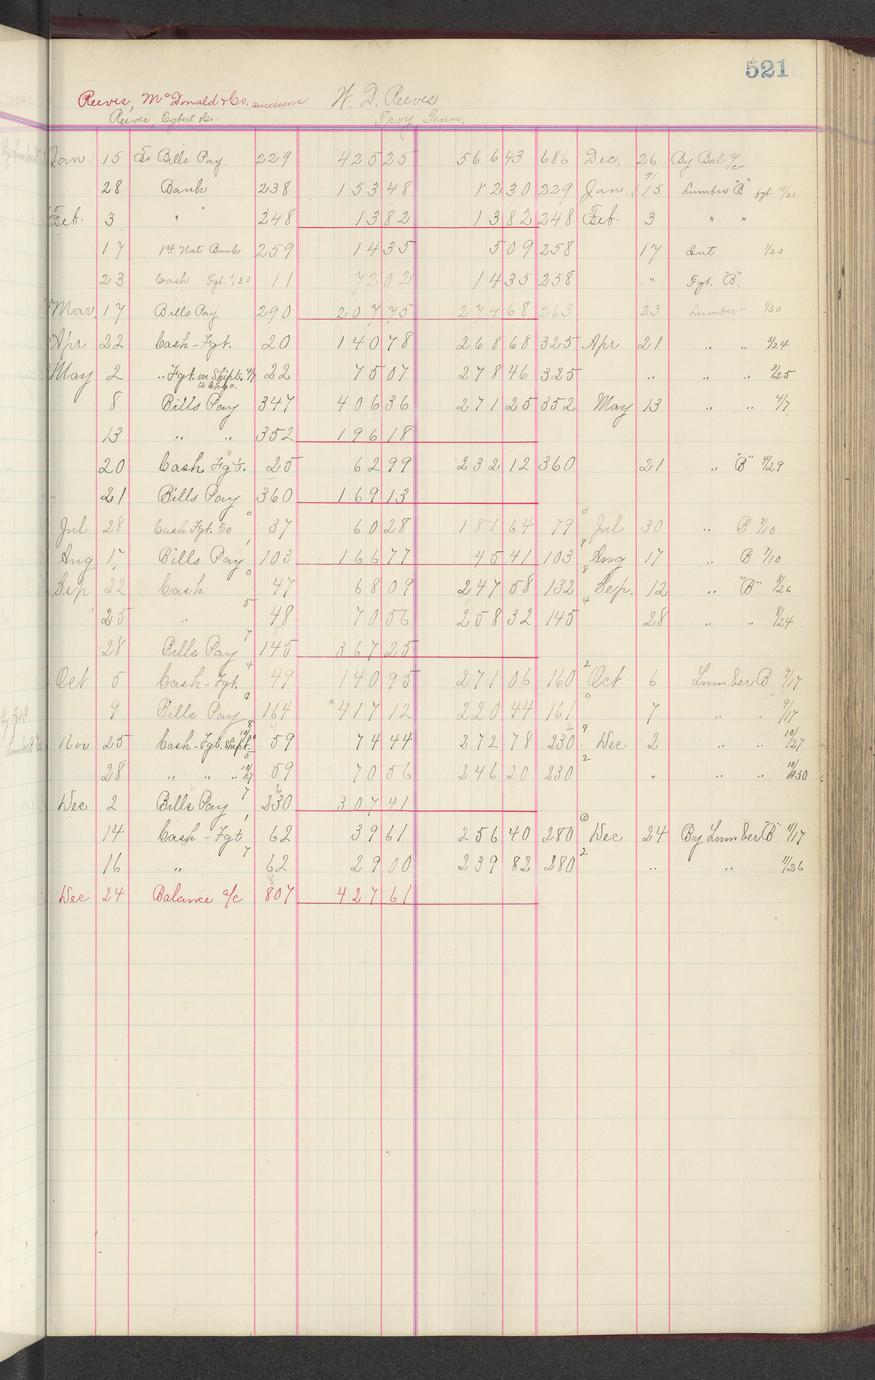 521
Reeves, McDonald & Co. successors W. D. Reeves
Reeves, Egbert & Co. Troy Tenn.
Jan 15 To Bills Pay. 229 425 25 566 43 686 Dec. 26 By Bal a/c
28 Bank 238 153 48 12 30 229 Jan. 15 Lumber "B" fgt. 11/21
Feb. 3 " " 248 13 82 13 82 248 Feb. 3 " "
17 1st Nat Bank 259 14 35 5 09 258 17 Int 1/23
23 Cash Fgt. 1/30 11 72 02 14 35 258 " Fgt. "B"
Mar. 17 Bills Pay 290 207 75 274 68 263 23 Lumber " 1/30
Apr 22 Cash-Fgt. 20 140 78 268 68 325 Apr 21 " " 2/24
May 2 " Fgt. on Shipts. 4/7 22 75 07 278 46 325 " " " 2/25
8 Bills Pay 347 406 36 271 25 352 May 13 " " 4/7
13 " " 352 196 18
20 Cash Fgt. 25 62 99 232 12 360 21 " "B" 4/29
21 Bills Pay 360 169 13
Jul 28 Cash Fgt. 7/10 37 60 28 181 64 79 Jul 30 " B 7/10
Aug 17 Bills Pay 103 166 77 45 41 103 Aug 17 B 7/10
Sep 22 Cash 47 68 09 247 58 132 Sep. 12 " "B" 8/26
25 " 48 70 56 258 32 145 28 " " 8/24
28 Bills Pay 145 367 25
Oct 5 Cash-Fgt. 49 140 95 271 06 160 Oct 6 Lumber B 9/17
9 Bills Pay 164 417 12 220 44 161 7 " " 9/17
Nov 25 Cash-Fgt. Shipt. 59 74 44 272 78 230 Dec 2 " " 10/27
28 " " " 59 70 56 246 20 230 " " " 10/30
Dec 2 Bills Pay 230 307 41
14 Cash-Fgt 62 39 61 256 40 280 Dec 24 By Lumber "B" 11/17
16 " 62 29 00 239 82 280 " " 11/26
Dec 24 Balance a/c 807 427 61